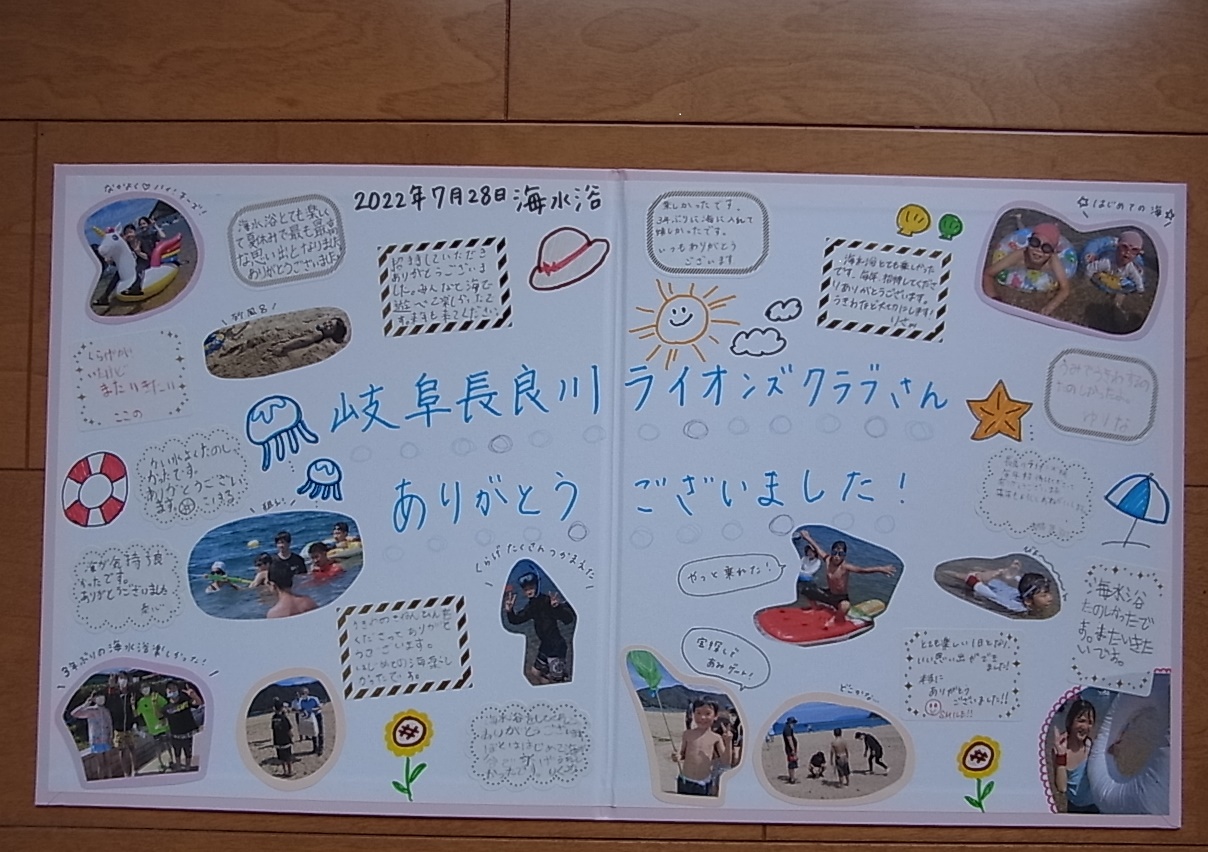 2022年7月28日海水浴
岐阜長良川ライオンズクラブさん
ありがとうございました!
なかよく♡ハイ、チーズ!
海水浴とても楽しく
て夏休みで最も最高
な思い出となりました
ありがとうございました。
招待していただき
ありがとうございま
した。みんなで海で
遊べて楽しかったで
楽しかったです。
3年ぶりに海に入れて
嬉しかったです。
いつもありがとう
ございます
海水浴とても楽しかった
です。毎年、招待してくださ
りありがとうございます。
☆はじめての海☆
砂風呂!
くらげが
いたけど
またいきたい
ここの
うみでうきわするの
たのしかったよ。
ゆりな
かい水よくたのし
かったです。
ありがとうござい
ます。
狙い!
海が気持ち良
かったです。
ありがとうございました
くらげたくさんつかまえた
やっと乗れた!
海水浴
たのしかったで
す。またいきた
いです。
3年ぶりの海水浴楽しかった!
くださってありがと
うございます。
はじめての海楽し
かったです。
宝探しで
あみゲート!
どこかな…
とても楽しい1日となり、
いい思い出ができ
ました!
本当に
ありがとう
ございました!!
SMILE!!
海水浴をしてくれ